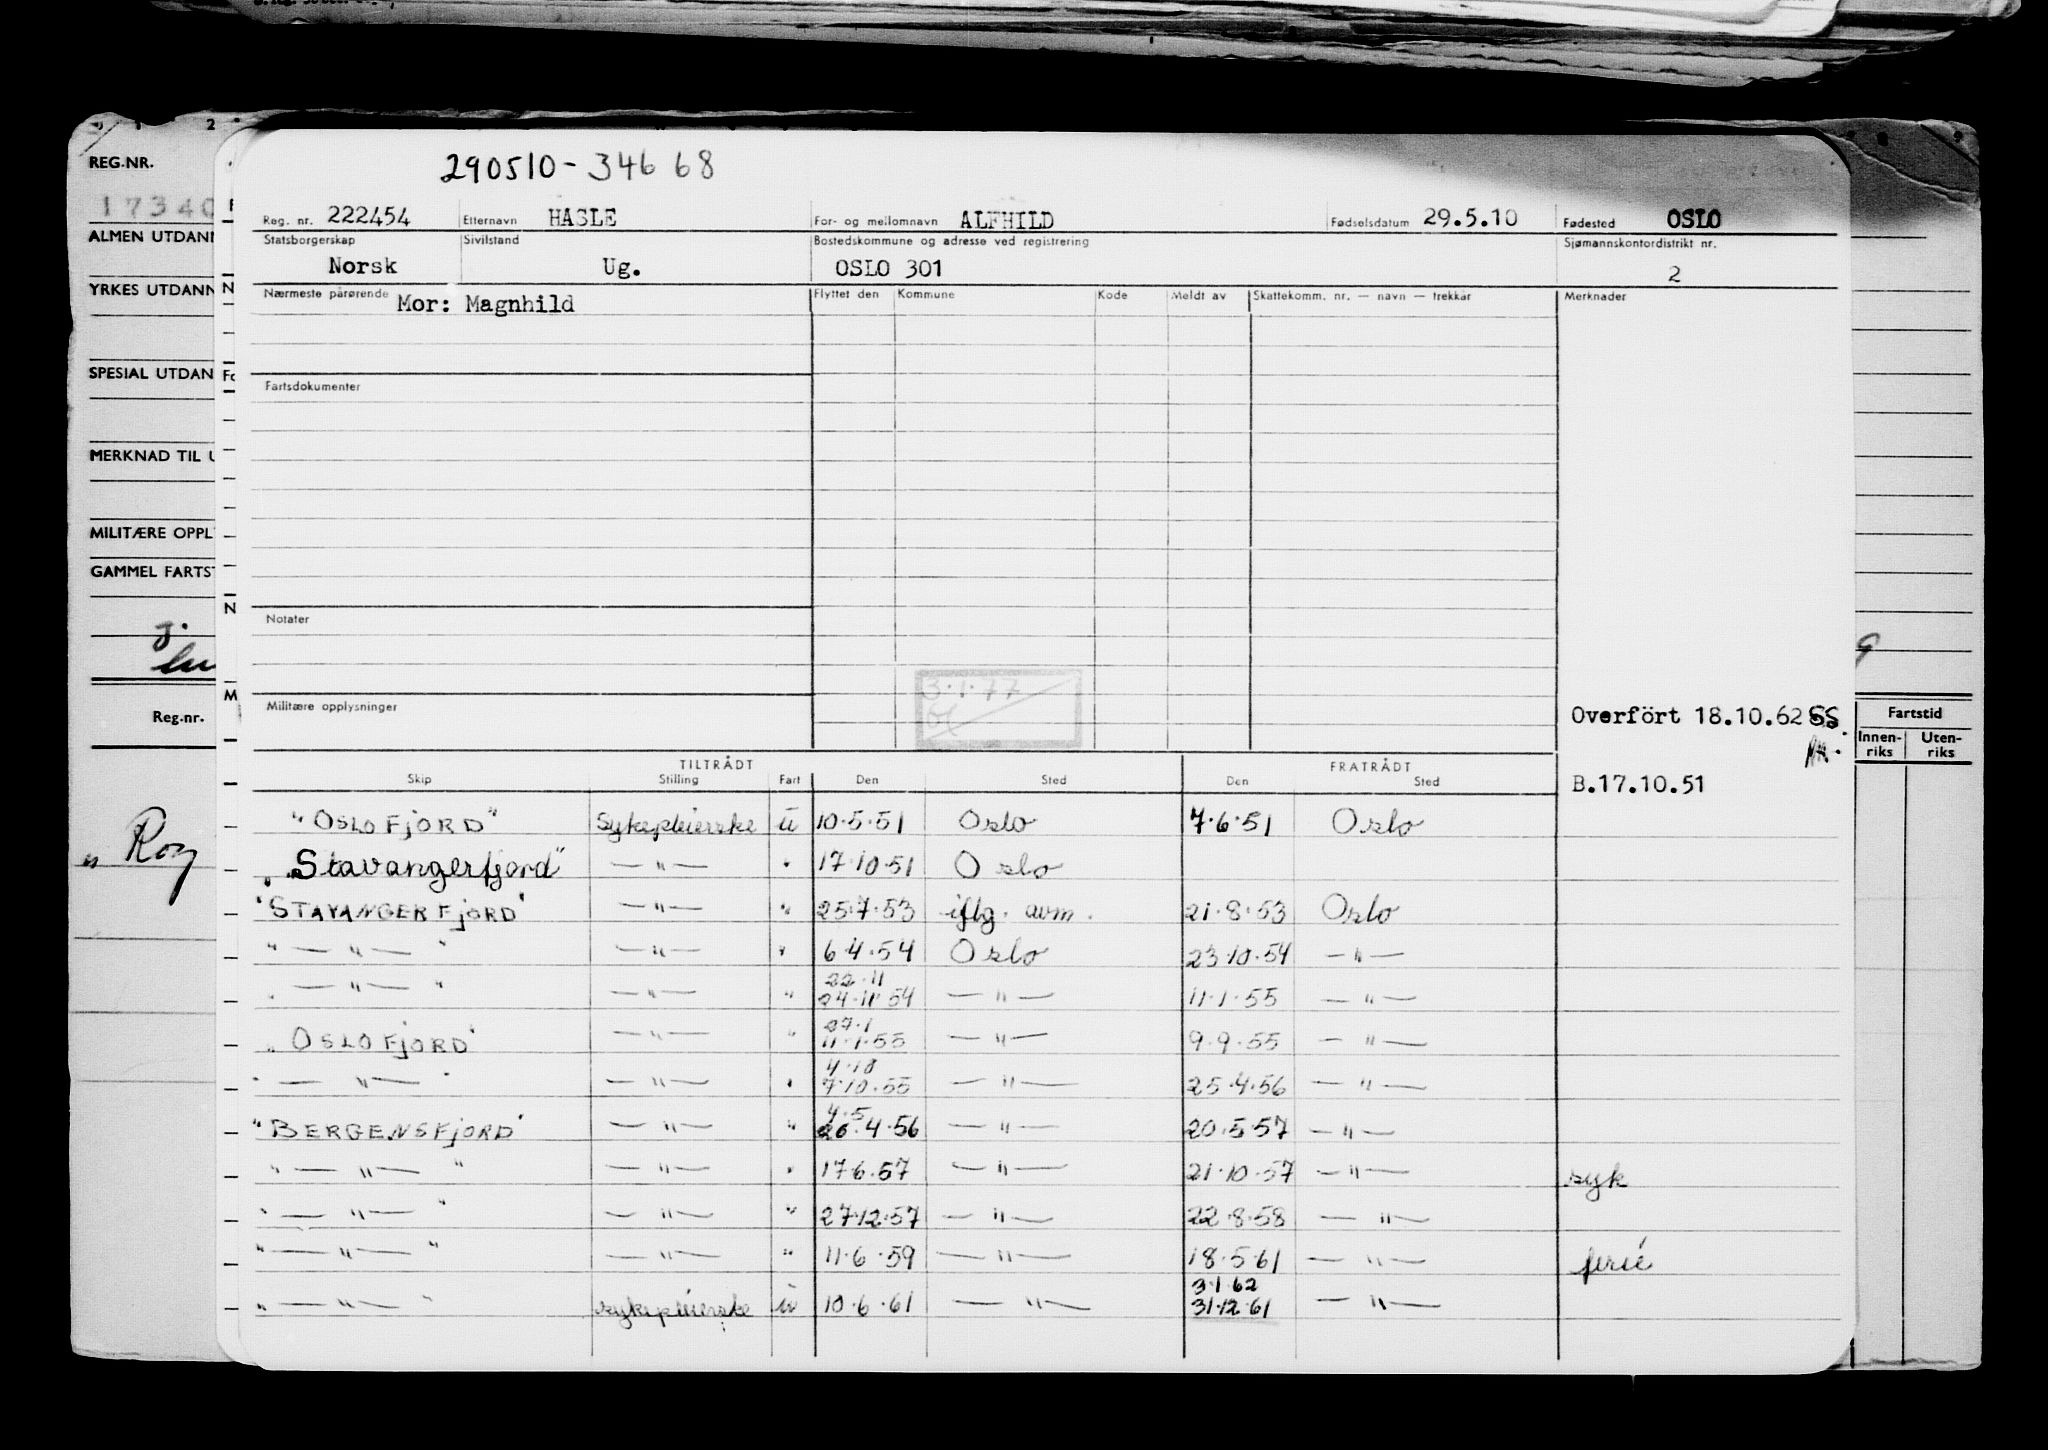 REG.NR.
17340
ALMEN UTDAN
YRKES UTDANN
SPESIAL UTDAN
MERKNAD TIL U
MILITÆRE OPPL
GAMMEL FARTST
Reg.-nr.
" Roy
290510-34668
Reg. nr. 222454 Etternavn HASLE For- og mellomnavn ALFHILD Fødselsdatum 29.5.10 Fødested OSLO
Statsborgerskap Sivilstand Bostedskommune og adresse ved registrering Sjømannskontordistrikt nr.
Norsk Ug. OSLO 301 2
Nærmeste pårørende Mor: Magnhild Flyttet den Kommune Kode Meldt av Skattekomm. nr. — navn — trekkår Merknader
Fartsdokumenter
Notater
3.1.77
Militære opplysninger
Overfört 18.10.62 SS
B.17.10.51
TILTRÅDT FRATRÅDT
Skip Stilling Fart Den Sted Den Sted
"OSLOFJORD" Sykepleierske u 10.5.51 Oslo 7.6.51 Oslo
"Stavangerfjord" —"— " 17.10.51 Oslo
"STAVANGERFJORD" —"— " 25.7.53 iflg. avm. 21.8.53 Oslo
" —"— " —"— " 6.4.54 Oslo 23.10.54 —"—
22.11
" —"— " —"— " 24.11.54 —"— 11.1.55 —"—
27.1
"OSLOFJORD" —"— " 11.1.55 —"— 9.9.55 —"—
4.10
" —"— " —"— " 7.10.55 —"— 25.4.56 —"—
4.5
"BERGENSFJORD" —"— " 26.4.56 —"— 20.5.57 —"—
" —"— " —"— " 17.6.57 —"— 21.10.57 —"— syk
" —"— " —"— " 27.12.57 —"— 22.8.58 —"—
" —"— " —"— " 11.6.59 —"— 18.5.61 —"— ferie
3.1.62
" —"— " sykepleierske u 10.6.61 —"— 31.12.61 —"—
Fartstid
Innen-riks Uten-riks